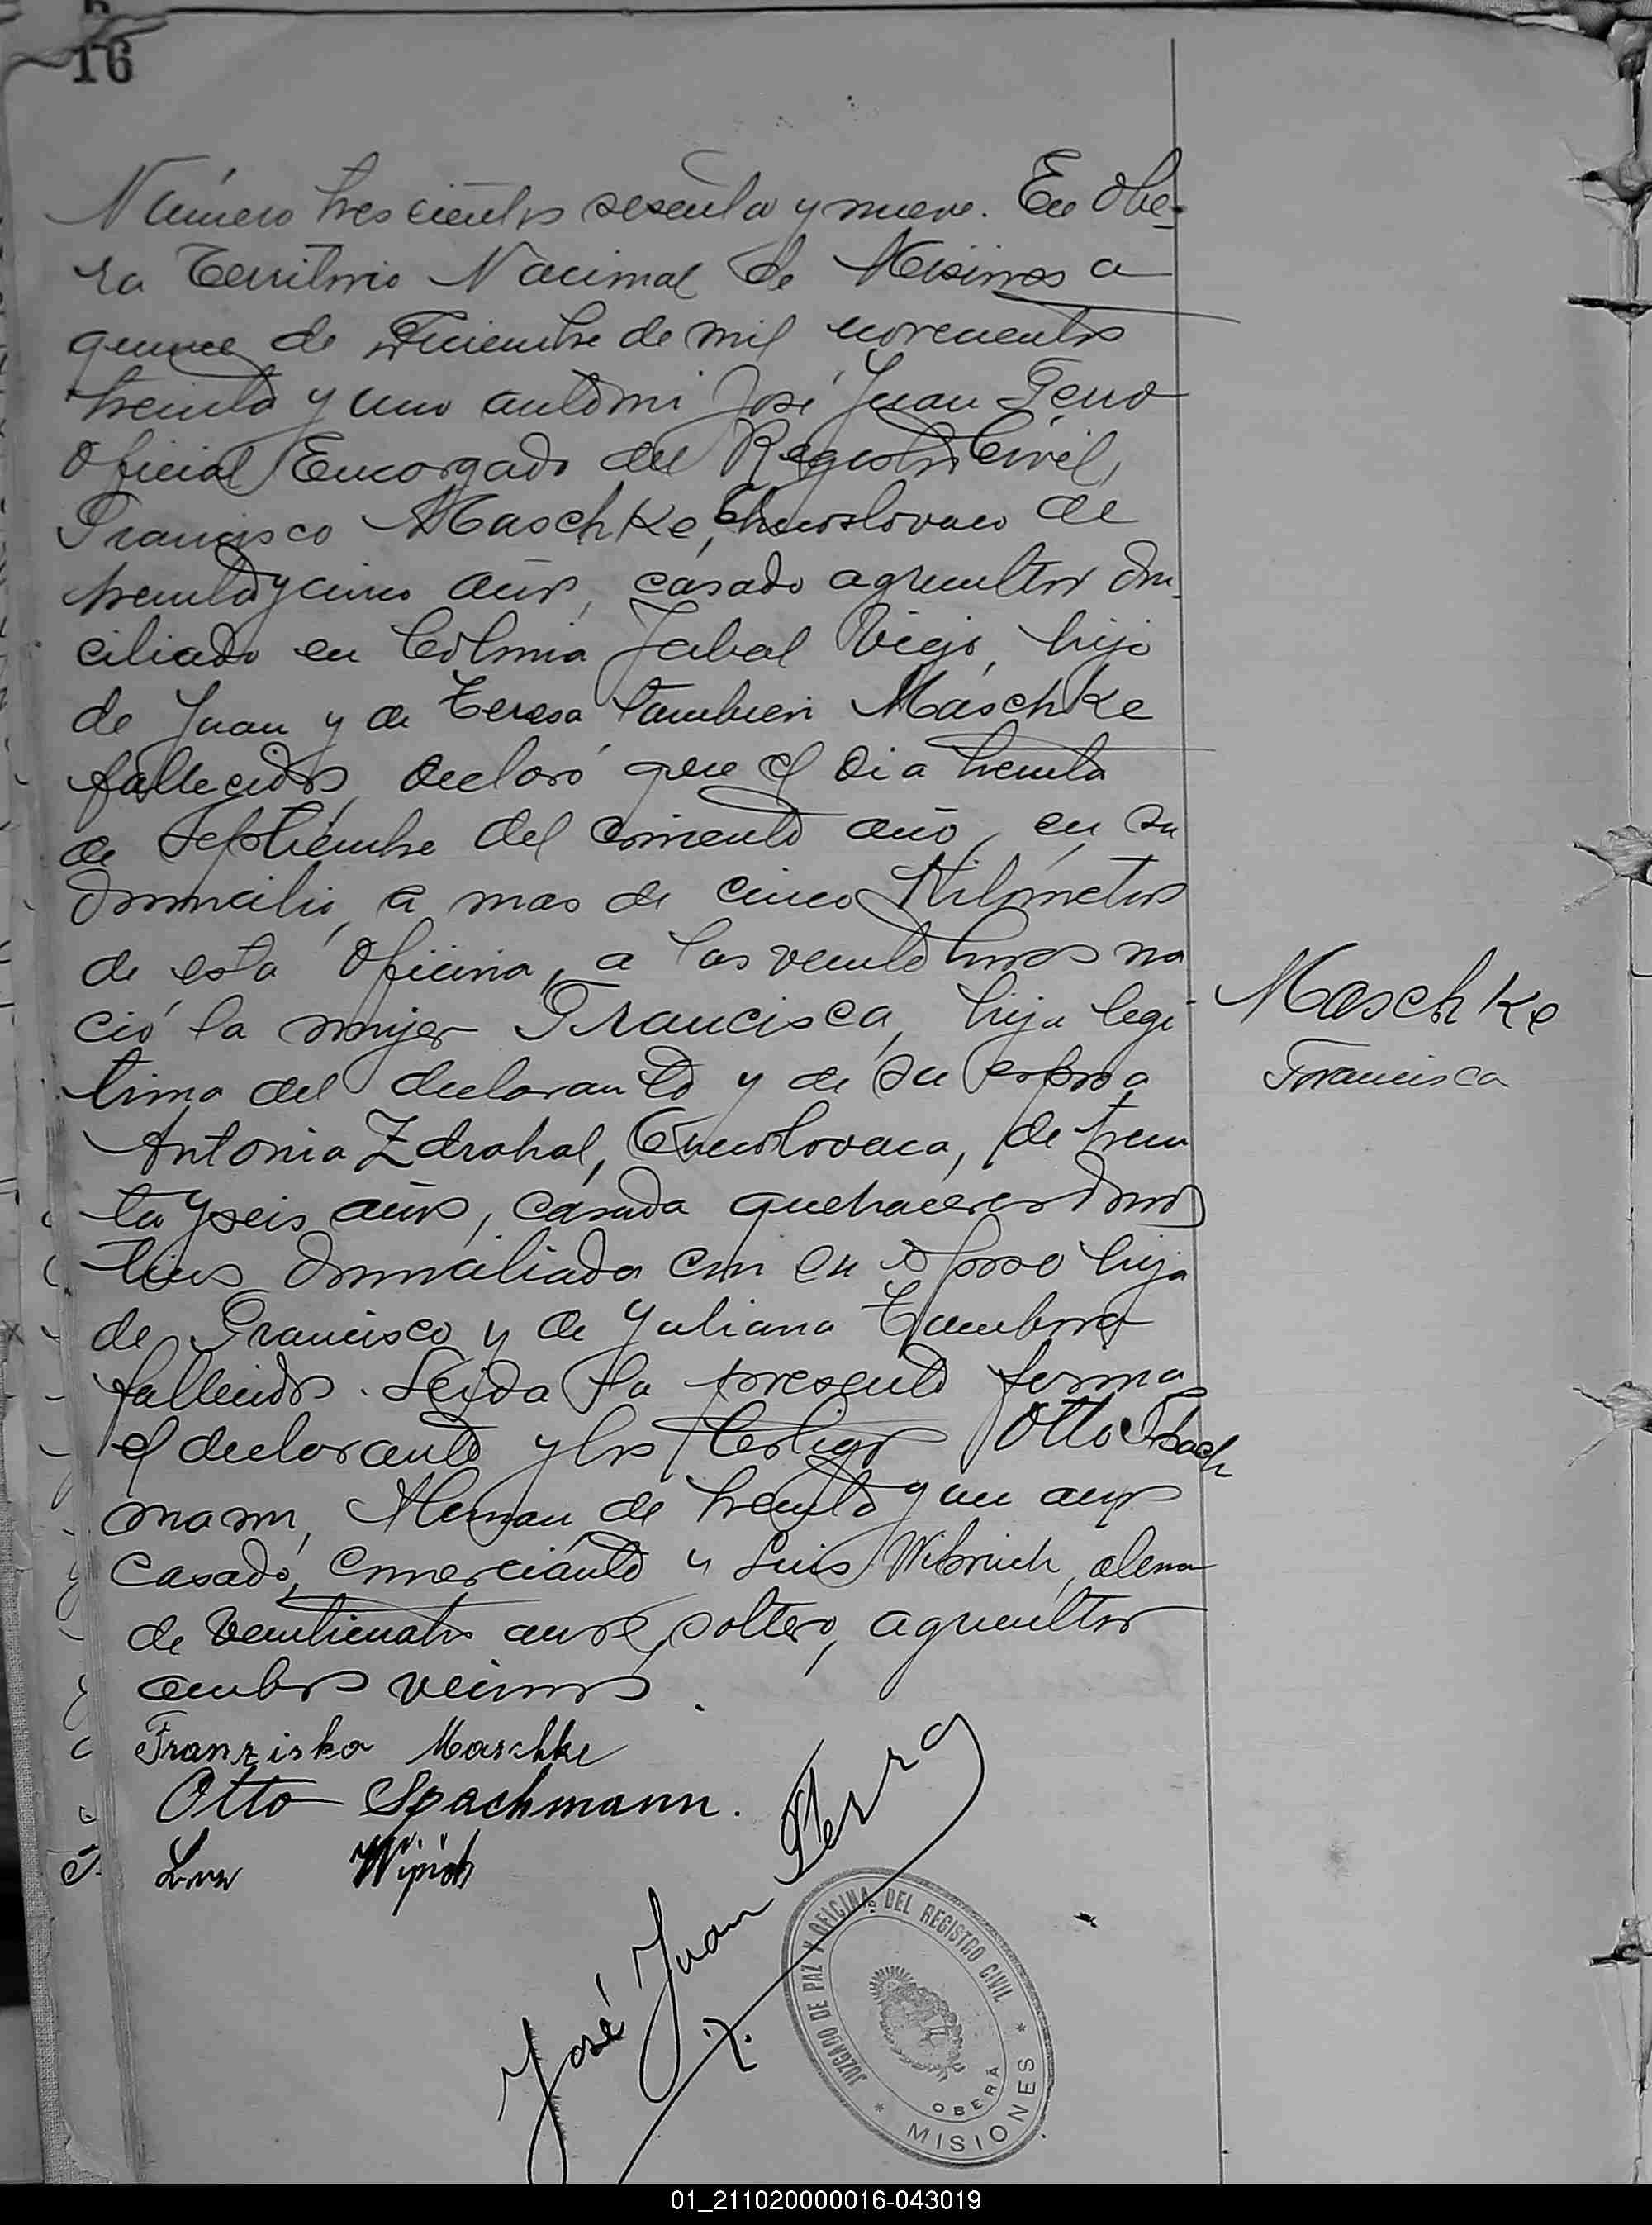 16
Número trescientos sesenta y nueve. En Obe-
ra Territorio Nacional de Misiones a
quince de Diciembre de mil novecientos
treinta y uno ante mi José Juan Perro
Oficial Encargado del Registro Civil,
Francisco Maschke, Checoslovaco de
treinta y cinco años, casado agricultor dom
ciliado en Colonia Yabal Viejo, hijo
de Juan y de Teresa tambien Maschke
fallecidos, declaró que el dia treinta
de Septiembre del corriente año, en su
domicilio, a mas de cinco Kilometros
de esta Oficina, a las veinte horas na
ció la mujer Francisca, hija legi
tima del declarante y de su esposa
Antonia Zdrahal, Checoslovaca, de trein
ta y seis años, casada quehaceres domes
ticos domiciliada con su esposo hija
de Francisco y de Yuliana
fallecidos. Leida la presente firma
el declarante y los testigos Otto Spach
mann, Aleman, de treinta y un años
casado, comerciante y Luis Wibrich, alema
de veinticuatro años, soltero, agricultor
ambos vecinos.
Maschke
Francisca
Franziska Maschke
Otto Spachmann.
José Juan Perro
JUZGADO DE PAZ Y OFICINA DEL REGISTRO CIVIL
OBERÁ
* MISIONES *
01_211020000016-043019